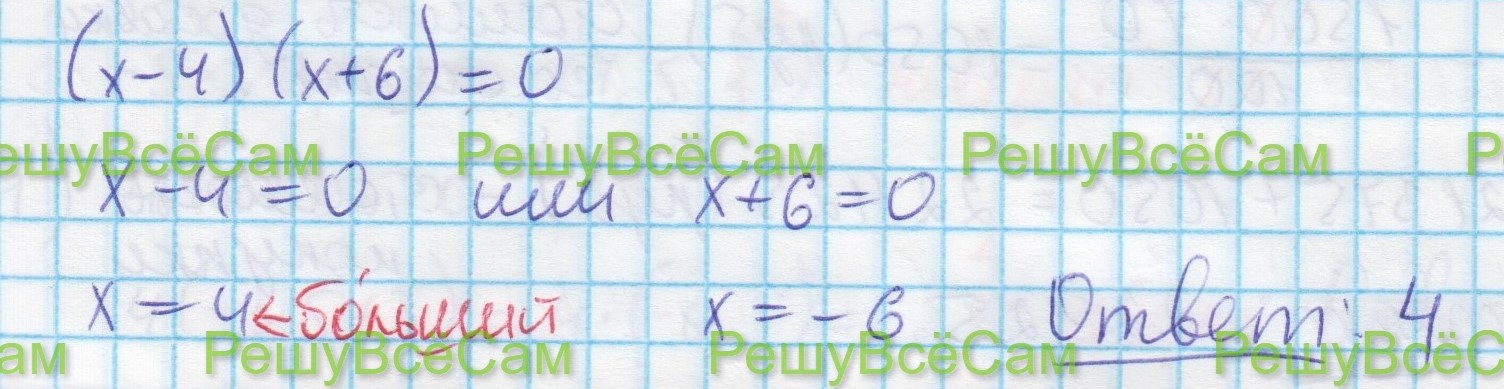 (x-4)(x+6)=0
ешуВсёСам РешуВсёСам РешуВсёСам Р
x-4=0 или x+6=0
x=4 ← бо́льший x=-6 Ответ: 4
ам РешуВсёСам РешуВсёСам РешуВсёС